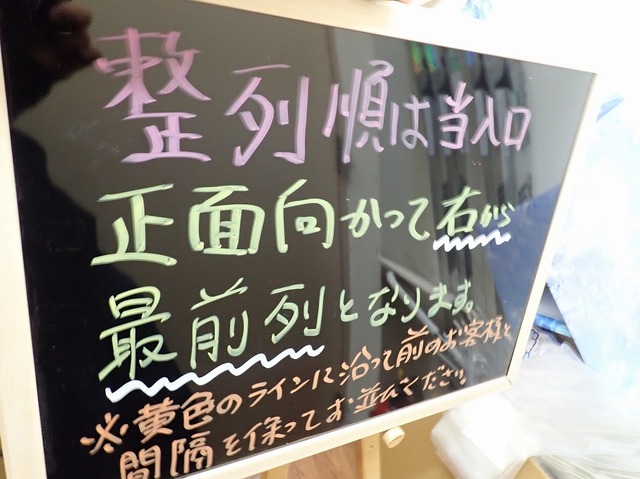 整列順は当入口
正面向かって右から
最前列となります。
※黄色のラインに沿って前のお客様と
間隔を保ってお並びください